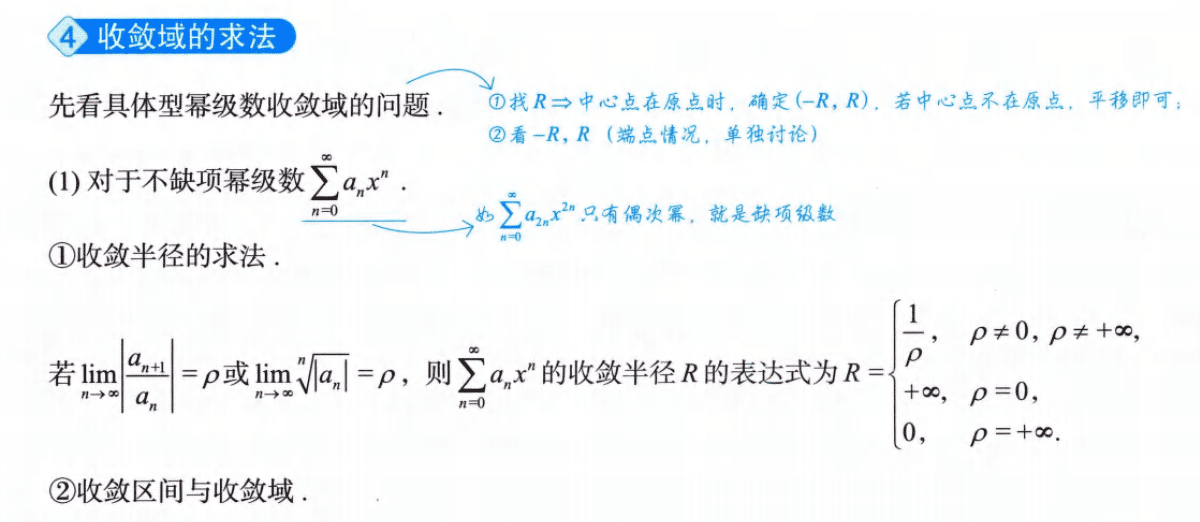 4 收敛域的求法
先看具体型幂级数收敛域的问题.
①找R⇒中心点在原点时,确定(-R, R),若中心点不在原点,平移即可;
②看-R, R (端点情况,单独讨论)
(1) 对于不缺项幂级数 $\sum_{n=0}^{\infty} a_n x^n$ .
如 $\sum_{n=0}^{\infty} a_{2n} x^{2n}$ 只有偶次幂,就是缺项级数
①收敛半径的求法.
若 $\lim_{n\to\infty} \left|\frac{a_{n+1}}{a_n}\right| = \rho$ 或 $\lim_{n\to\infty} \sqrt[n]{|a_n|} = \rho$ ,则 $\sum_{n=0}^{\infty} a_n x^n$ 的收敛半径 R 的表达式为 $R = \begin{cases} \frac{1}{\rho}, & \rho \neq 0, \rho \neq +\infty, \\ +\infty, & \rho = 0, \\ 0, & \rho = +\infty. \end{cases}$
②收敛区间与收敛域.